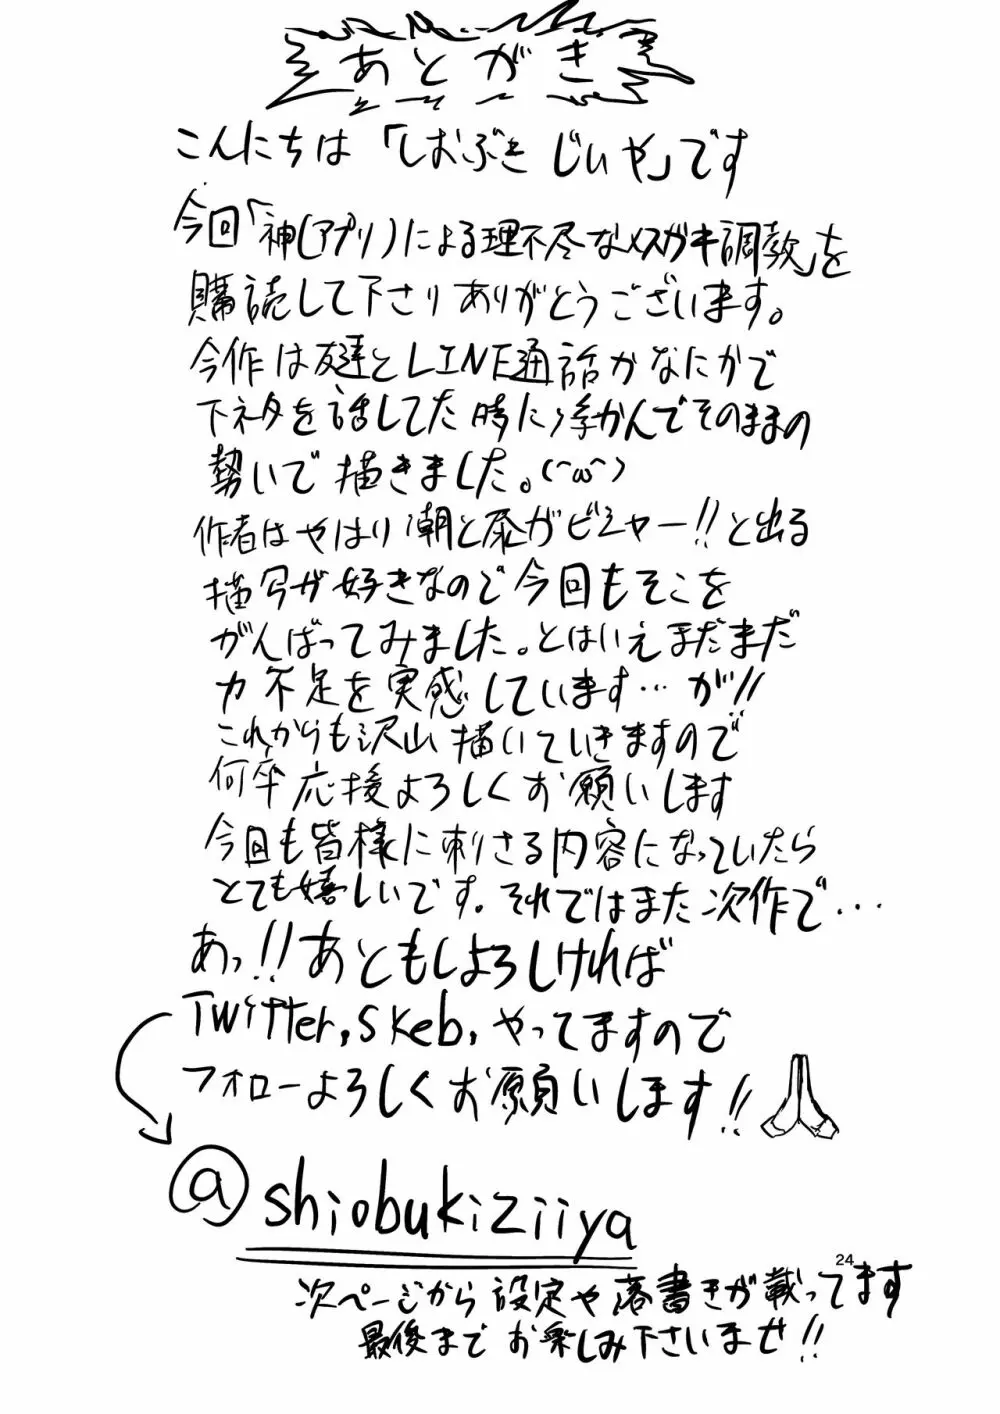 あとがき
こんにちは「しおぶき じいや」です
今回「神(アプリ)による理不尽なメスガキ調教」を
購読して下さりありがとうございます。
今作は友達とLINE通話かなにかで
下ネタを話してた時に浮かんでそのままの
勢いで描きました。(^ω^)
作者はやはり潮と尿がビシャー!!と出る
描写が好きなので今回もそこを
がんばってみました。とはいえまだまだ
力不足を実感しています…が!!
これからも沢山描いていきますので
何卒応援よろしくお願いします
今回も皆様に刺さる内容になっていたら
とても嬉しいです。それではまた次作で…
あっ!!あともしよろしければ
Twitter,skeb,やってますので
フォローよろしくお願いします!!
@shiobukiziiya
24
次ページから設定や落書きが載ってます
最後までお楽しみ下さいませ!!